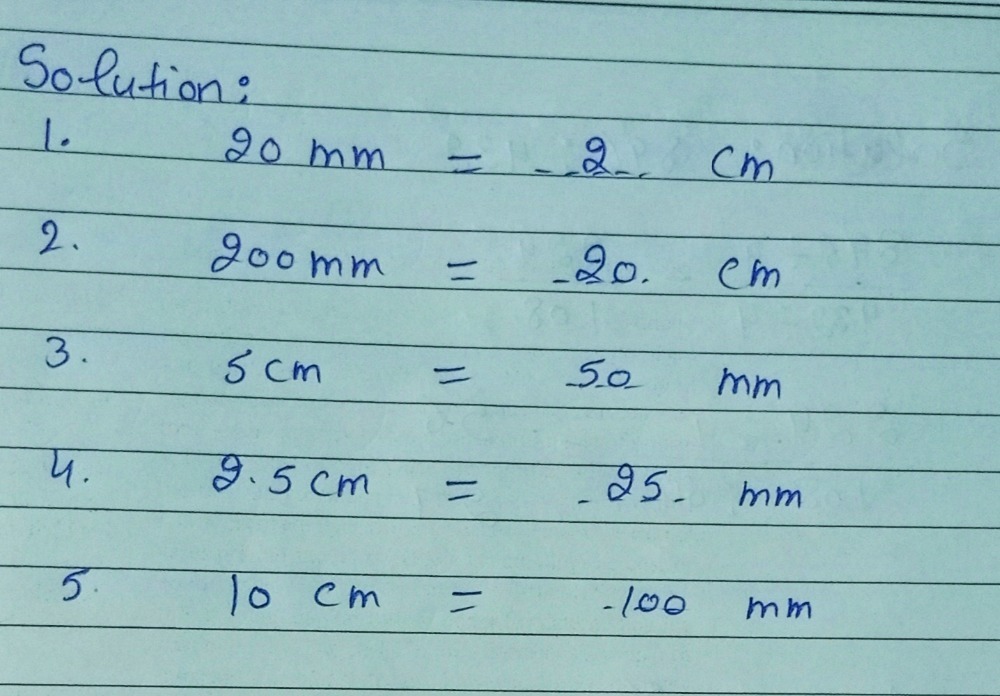 Solution:
1. 20 mm = --2-- cm
2. 200mm = -20. cm
3. 5 cm = -50- mm
4. 2.5 cm = -25- mm
5. 10 cm = -100 mm